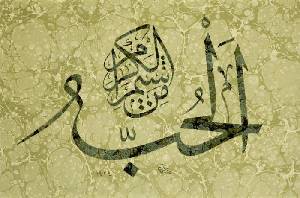 الحُبّ
من شيم الكرام